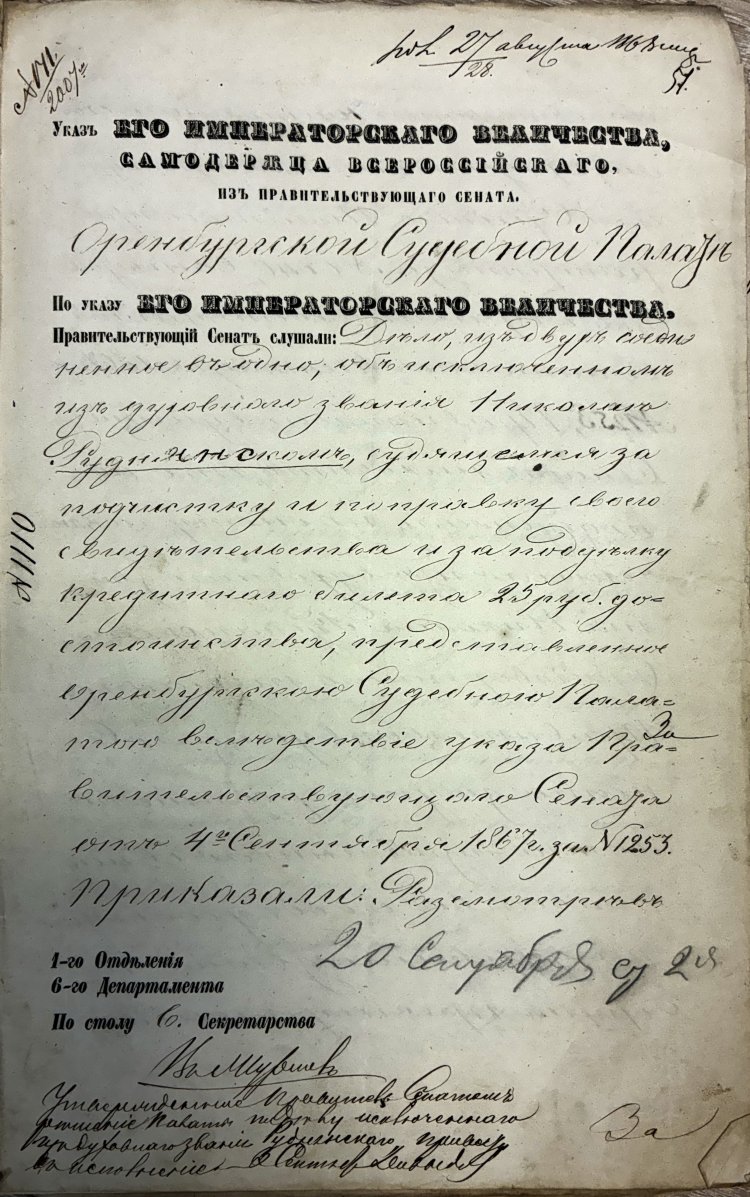 № 171.
2007
27 августа
28.
51.
Указъ ЕГО ИМПЕРАТОРСКАГО ВЕЛИЧЕСТВА,
САМОДЕРЖЦА ВСЕРОССІЙСКАГО,
ИЗЪ ПРАВИТЕЛЬСТВУЮЩАГО СЕНАТА.
Оренбургской Судебной Палатѣ
По указу ЕГО ИМПЕРАТОРСКАГО ВЕЛИЧЕСТВА,
Правительствующій Сенатъ слушали: Дѣло, изъ двухъ соеди
ненное въ одно, объ исключенномъ
изъ духовнаго званія Николаѣ
Руднянскомъ, судящемся за
подчистку и поправку своего
свидѣтельства и за поддѣлку
кредитнаго билета 25 руб. до-
стоинства, представленное
Оренбургскою Судебною Пала-
тою вслѣдствіе указа Пра-
За
вительствующаго Сената
отъ 4го Сентября 1867 г. за № 1253.
Приказали: Разсмотрѣвъ
№ 1110
20 Сентября
1-го Отдѣленія
6-го Департамента
По столу 6. Секретарства
исключеннаго
изъ духовнаго званія
въ исполненіе
За